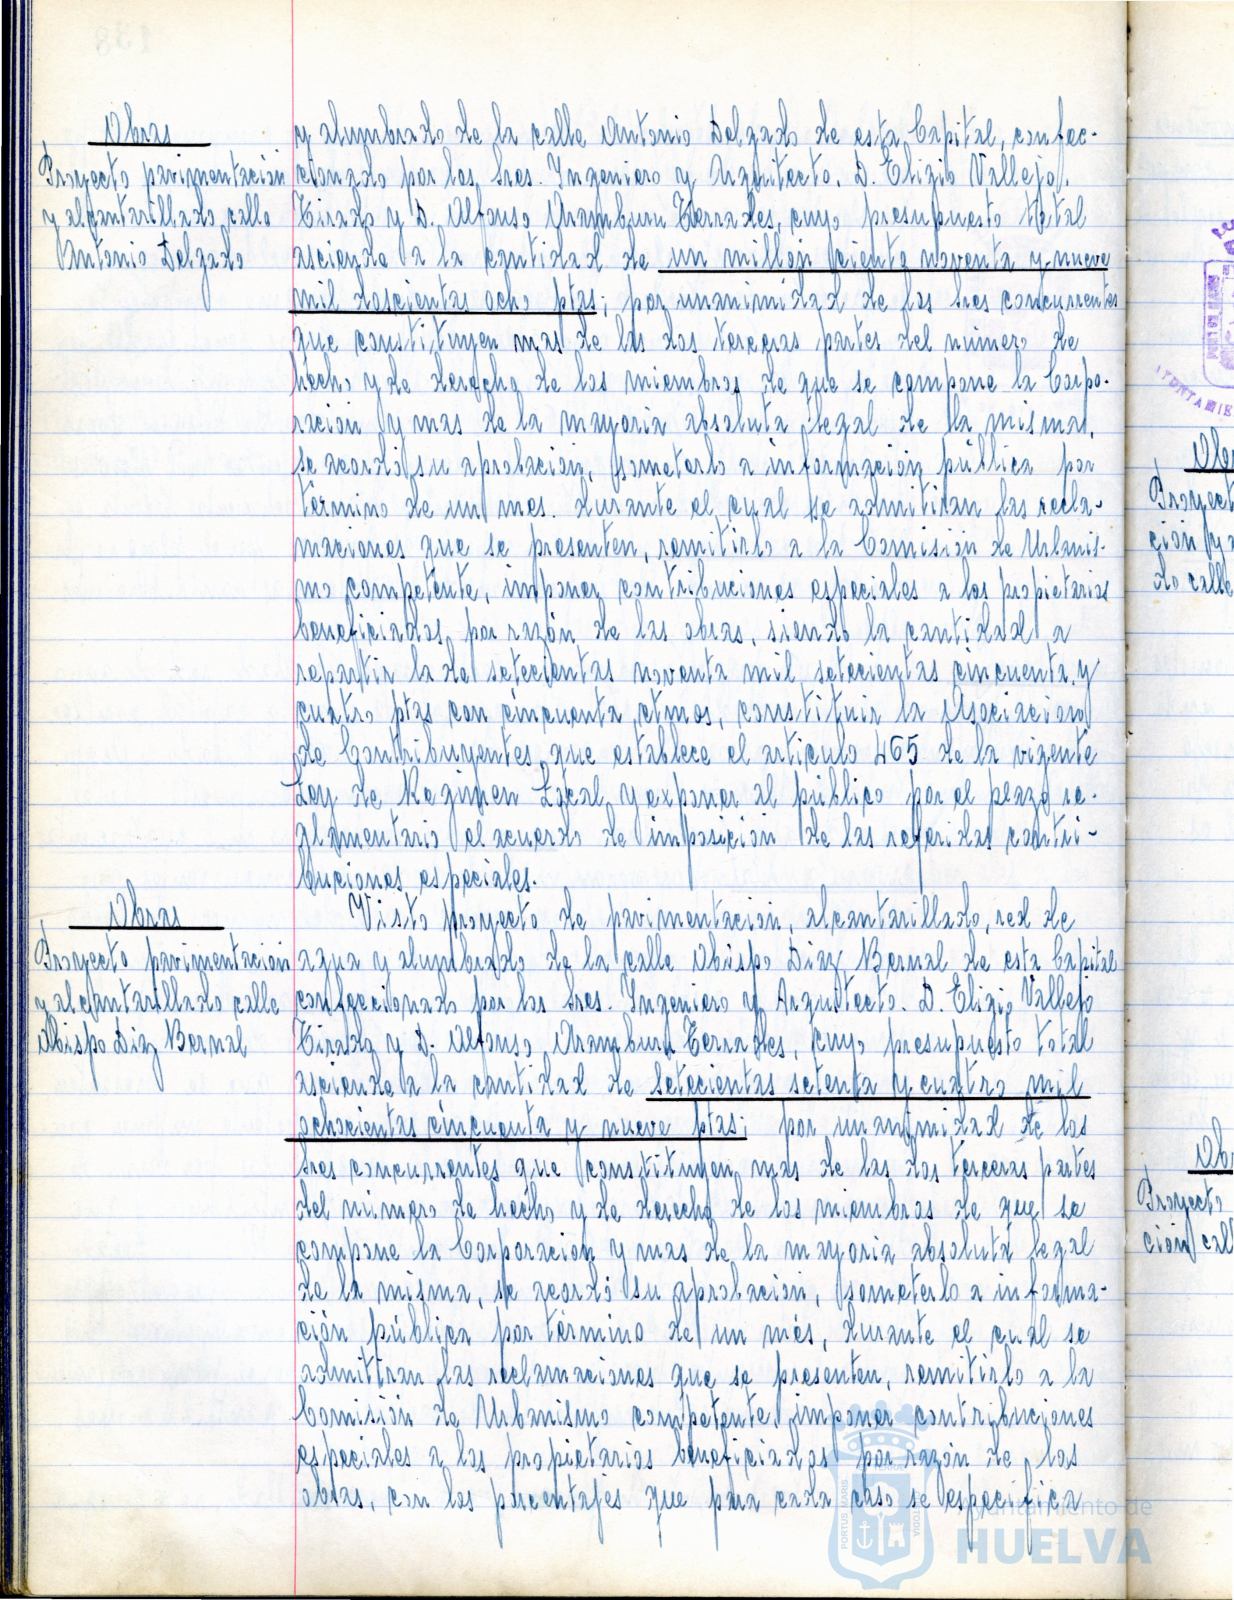 Obras
Proyecto pavimentación
y alcantarillado calle
Antonio Delgado
y alumbrado de la calle Antonio Delgado de esta Capital, confec-
cionado por los Sres. Ingeniero y Arquitecto, D. Eligio Vallejo,
Tirado y D. Alfonso Aramburu Terrades, cuyo presupuesto total
asciende a la cantidad de un millon ciento noventa y nueve
mil doscientas ocho ptas; por unanimidad de los Sres concurrentes
que constituyen mas de las dos terceras partes del número de
hecho y de derecho de los miembros de que se compone la Corpo-
racion y mas de la mayoria absoluta legal de la misma,
se acordó su aprobacion, someterlo a información pública por
término de un mes. durante el cual se admitiran las recla-
maciones que se presenten, remitirlo a la Comisión de Urbanis-
mo competente, imponer contribuciones especiales a los propietarios
beneficiados por razón de las obras, siendo la cantidad a
repartir la de setecientas noventa mil setecientas cincuenta y
cuatro ptas con cincuenta ctmos, constituir la Asociacion
de Contribuyentes que establece el articulo 465 de la vigente
Ley de Regimen Local y exponer al público por el plazo re-
glamentario el acuerdo de imposicion de las referidas contri-
buciones especiales.
Obras
Proyecto pavimentación
y alcantarillado calle
Obispo Diaz Bernal
Visto proyecto de pavimentacion, alcantarillado, red de
agua y alumbrado de la calle Obispo Diaz Bernal de esta Capital
confeccionado por los Sres. Ingeniero y Arquitecto. D. Eligio Vallejo
Tirado y D. Alfonso Aramburu Terrades, cuyo presupuesto total
asciende a la cantidad de setecientas setenta y cuatro mil
ochocientas cincuenta y nueve ptas; por unanimidad de los
Sres concurrentes que constituyen mas de las dos terceras partes
del número de hecho y de derecho de los miembros de que se
compone la Corporacion y mas de la mayoria absoluta legal
de la misma, se acordó su aprobacion, someterlo a informa-
ción pública por término de un més, durante el cual se
admitiran las reclamaciones que se presenten, remitirlo a la
Comisión de Urbanismo competente, imponer contribuciones
especiales a los propietarios beneficiados por razón de las
obras, con los porcentajes que para cada caso se especifica
Proyecto
Ayuntamiento de
HUELVA